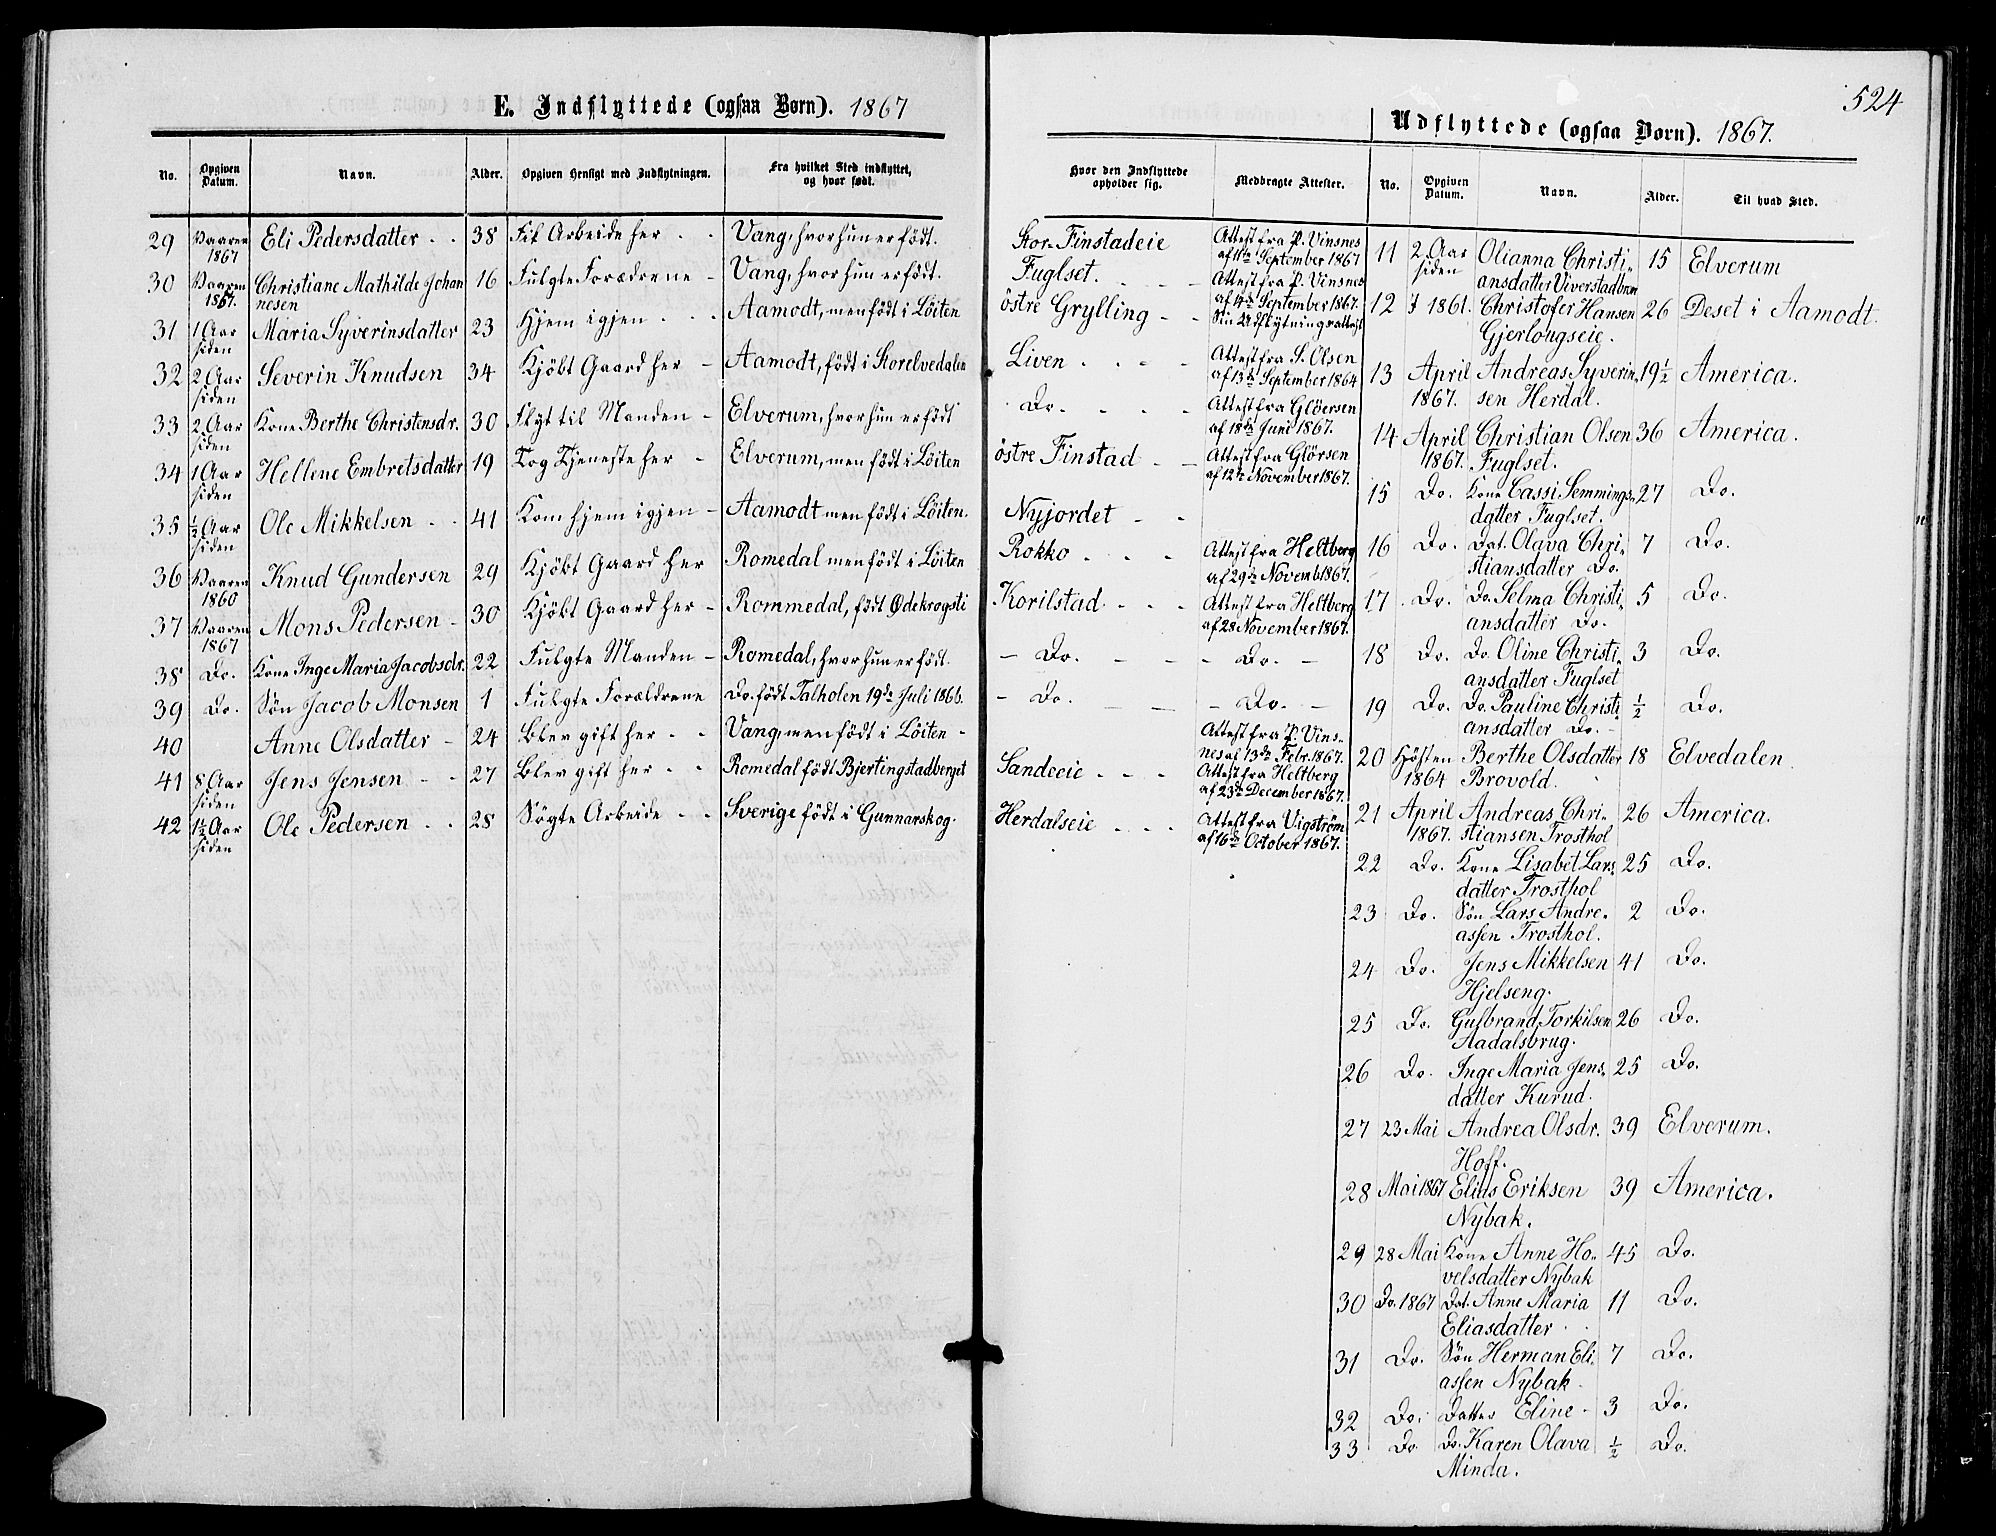 E. Indflyttede (ogsaa Børn). 1867
No. Opgiven Datum. Navn. Alder. Opgiven Hensigt med Indflytningen. Fra hvilket Sted indflyttet, og hvor født.
29 Vaaren 1867 Eli Pedersdatter 38 Fik Arbeide her Vang, hvor hun er født.
30 Vaaren 1867. Christiane Mathilde Johannesen 16 Fulgte Forældrene Vang, hvor hun er født.
31 1 Aar siden Maria Syverinsdatter 23 Hjem igjen Aamodt, men født i Löiten
32 2 Aar siden Severin Knudsen 34 Kjöbt Gaard her Aamodt, født i Storelvedalen
33 2 Aar siden Kone Berthe Christensdr. 30 Flyt til Manden Elverum, hvor hun er født
34 1 Aar siden Hellene Embretsdatter 19 Tog Tjeneste her Elverum, men født i Löiten
35 ½ Aar siden Ole Mikkelsen 41 Kom hjem igjen Aamodt men født i Löiten.
36 Vaaren 1860 Knud Gundersen 29 Kjöbt Gaard her Romedal men født i Löiten
37 Vaaren 1867 Mons Pedersen 30 Kjöbt Gaard her Rommedal, født Ødekrogsti
38 Do. Kone Inge Maria Jacobsdr. 22 Fulgte Manden Romedal, hvor hun er født.
39 Do. Sön Jacob Monsen 1 Fulgte Forældrene Do. født Talholen 19de Juli 1866.
40 Anne Olsdatter 24 Blev gift her Vang, men født i Löiten
41 8 Aar siden Jens Jensen 27 Blev gift her Romedal født Bjertingstadberget
42 1½ Aar siden Ole Pedersen 28 Sögte Arbeide Sverige født i Gunnarskog.
524
Udflyttede (ogsaa Børn). 1867.
Hvor den Indflyttede opholder sig. Medbragte Attester. No. Opgiven Datum. Navn. Alder. Til hvad Sted.
Stor-Finstadeie Attest fra P. Vinsnes af 11te September 1867
Fuglset. Attest fra P. Vinsnes af 4de September 1867.
östre Grylling Sin Udflytningsattest
Liven Attest fra S. Olsen af 13de September 1864
Do. Attest fra Glöersen af 18de Juni 1867.
östre Finstad Attest fra Glörsen af 12te November 1867.
Nyjordet
Rokko Attest fra Heltberg af 29de Novemb 1867.
Korilstad Attest fra Heltberg af 28 November 1867.
Do. Do.
Do. Do.
Attest fra P. Vinsnes af 13de Febr. 1867.
Sandeeie Attest fra Heltberg af 23de December 1867.
Herdalseie Attest fra Vigström af 16de October 1867.
11 2 Aar siden Olianna Christiansdatter Viverstadbrun 15 Elverum
12 I 1861. Christofer Hansen Gjerlongseie. 26 Deset i Aamodt.
13 April 1867. Andreas Syverinsen Herdal. 19½ America.
14 April 1867. Christian Olsen Fuglset. 36 America.
15 Do. Kone Cassi Semmingsdatter Fuglset. 27 Do.
16 Do. Dat. Olava Christiansdatter Do. 7 Do.
17 Do. Do. Selma Christiansdatter Do. 5 Do.
18 Do. Do. Oline Christiansdatter Fuglset 3 Do.
19 Do. Do. Pauline Christiansdatter Do. ½ Do.
20 Hösten 1864 Berthe Olsdatter Brovold. 18 Elvedalen
21 April 1867. Andreas Christiansen Trosthol 26 America.
22 Do. Kone Lisabet Larsdatter Trosthol 25 Do.
23 Do. Sön Lars Andreassen Trosthol. 2 Do.
24 Do. Jens Mikkelsen Hjelseng. 41 Do.
25 Do. Gulbrand Torkilsen Aadalsbrug. 26 Do.
26 Do. Inge Maria Jensdatter Kurud. 25 Do.
27 23 Mai Andrea Olsdr. Hoff. 39 Elverum.
28 Mai 1867 Elias Eriksen Nybak. 39 America.
29 28 Mai Kone Anne Hovelsdatter Nybak 45 Do.
30 Do. 1867 Dat. Anne Maria Eliasdatter 11 Do.
31 Do. Sön Herman Eliassen Nybak 7 Do.
32 Do. Datter Eline 3 Do.
33 Do Do. Karen Olava Minda. ½ Do.